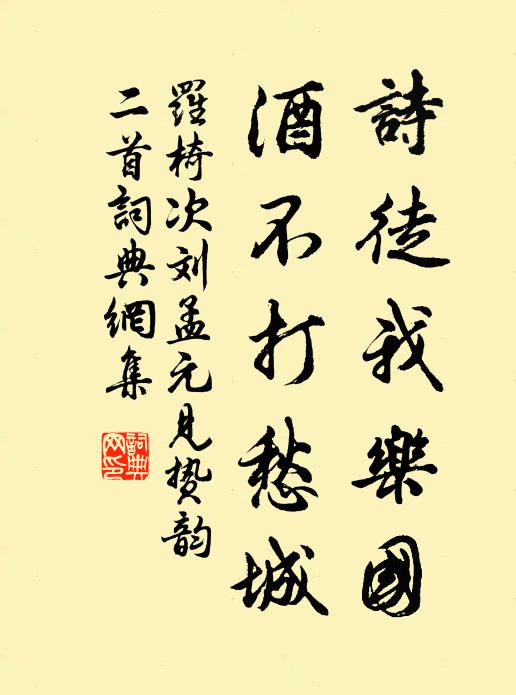 詩徒我樂國
酒不打愁城
羅椅次刘孟元見贽韵
二首詞典網集
詞典网印